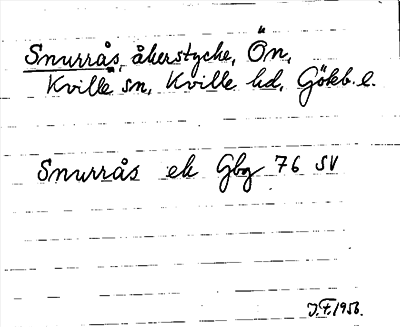 Snurrås, åkerstycke, Ön,
Kville sn, Kville hd, Gökb. l.
Snurrås ek Gbg 76 SV
J.F. 1956.